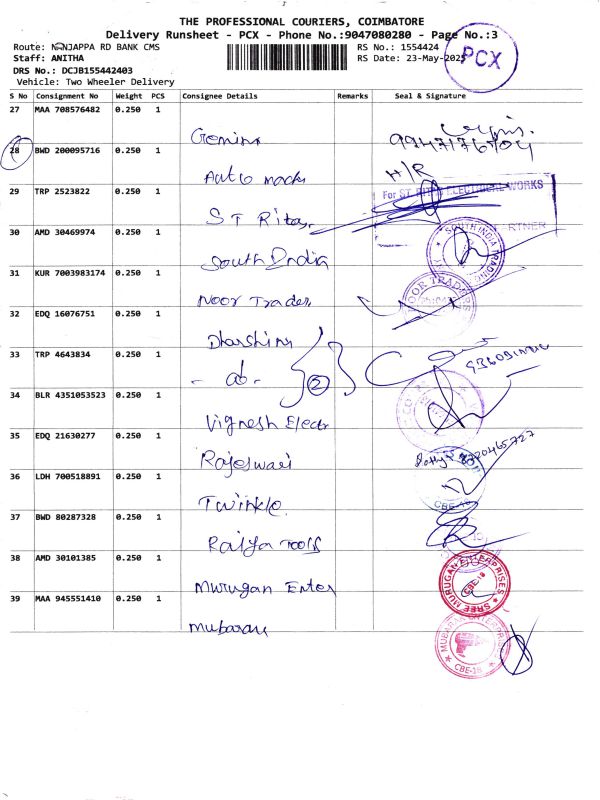 THE PROFESSIONAL COURIERS, COIMBATORE
Delivery Runsheet - PCX - Phone No.:9047080280 - Page No.:3
Route: NANJAPPA RD BANK CMS
RS No.: 1554424
PCX
Staff: ANITHA
RS Date: 23-May-2025
DRS No.: DCJB155442403
Vehicle: Two Wheeler Delivery
S No Consignment No Weight PCS Consignee Details Remarks Seal & Signature
27 MAA 708576482 0.250 1
Gemini
28 BWD 200095716 0.250 1
H/R
29 TRP 2523822 0.250 1
For ST RITA ELECTRICAL WORKS
ST Rita
30 AMD 30469974 0.250 1
SOUTH INDIA TRADING
South India
31 KUR 7003983174 0.250 1
NOOR TRADERS
Noor Trades
32 EDQ 16076751 0.250 1
Dharshini
33 TRP 4643834 0.250 1
- do - 2
34 BLR 4351053523 0.250 1
Vignesh Electr
35 EDQ 21630277 0.250 1
Rajeswari
36 LDH 700518891 0.250 1
Twinkle
CBE-18
37 BWD 80287328 0.250 1
38 AMD 30101385 0.250 1
SREE MURUGAN ENTERPRISES
CBE-18
Murugan Enter
39 MAA 945551410 0.250 1
MUBARAK ENTERPRISES
CBE-18
Mubarak